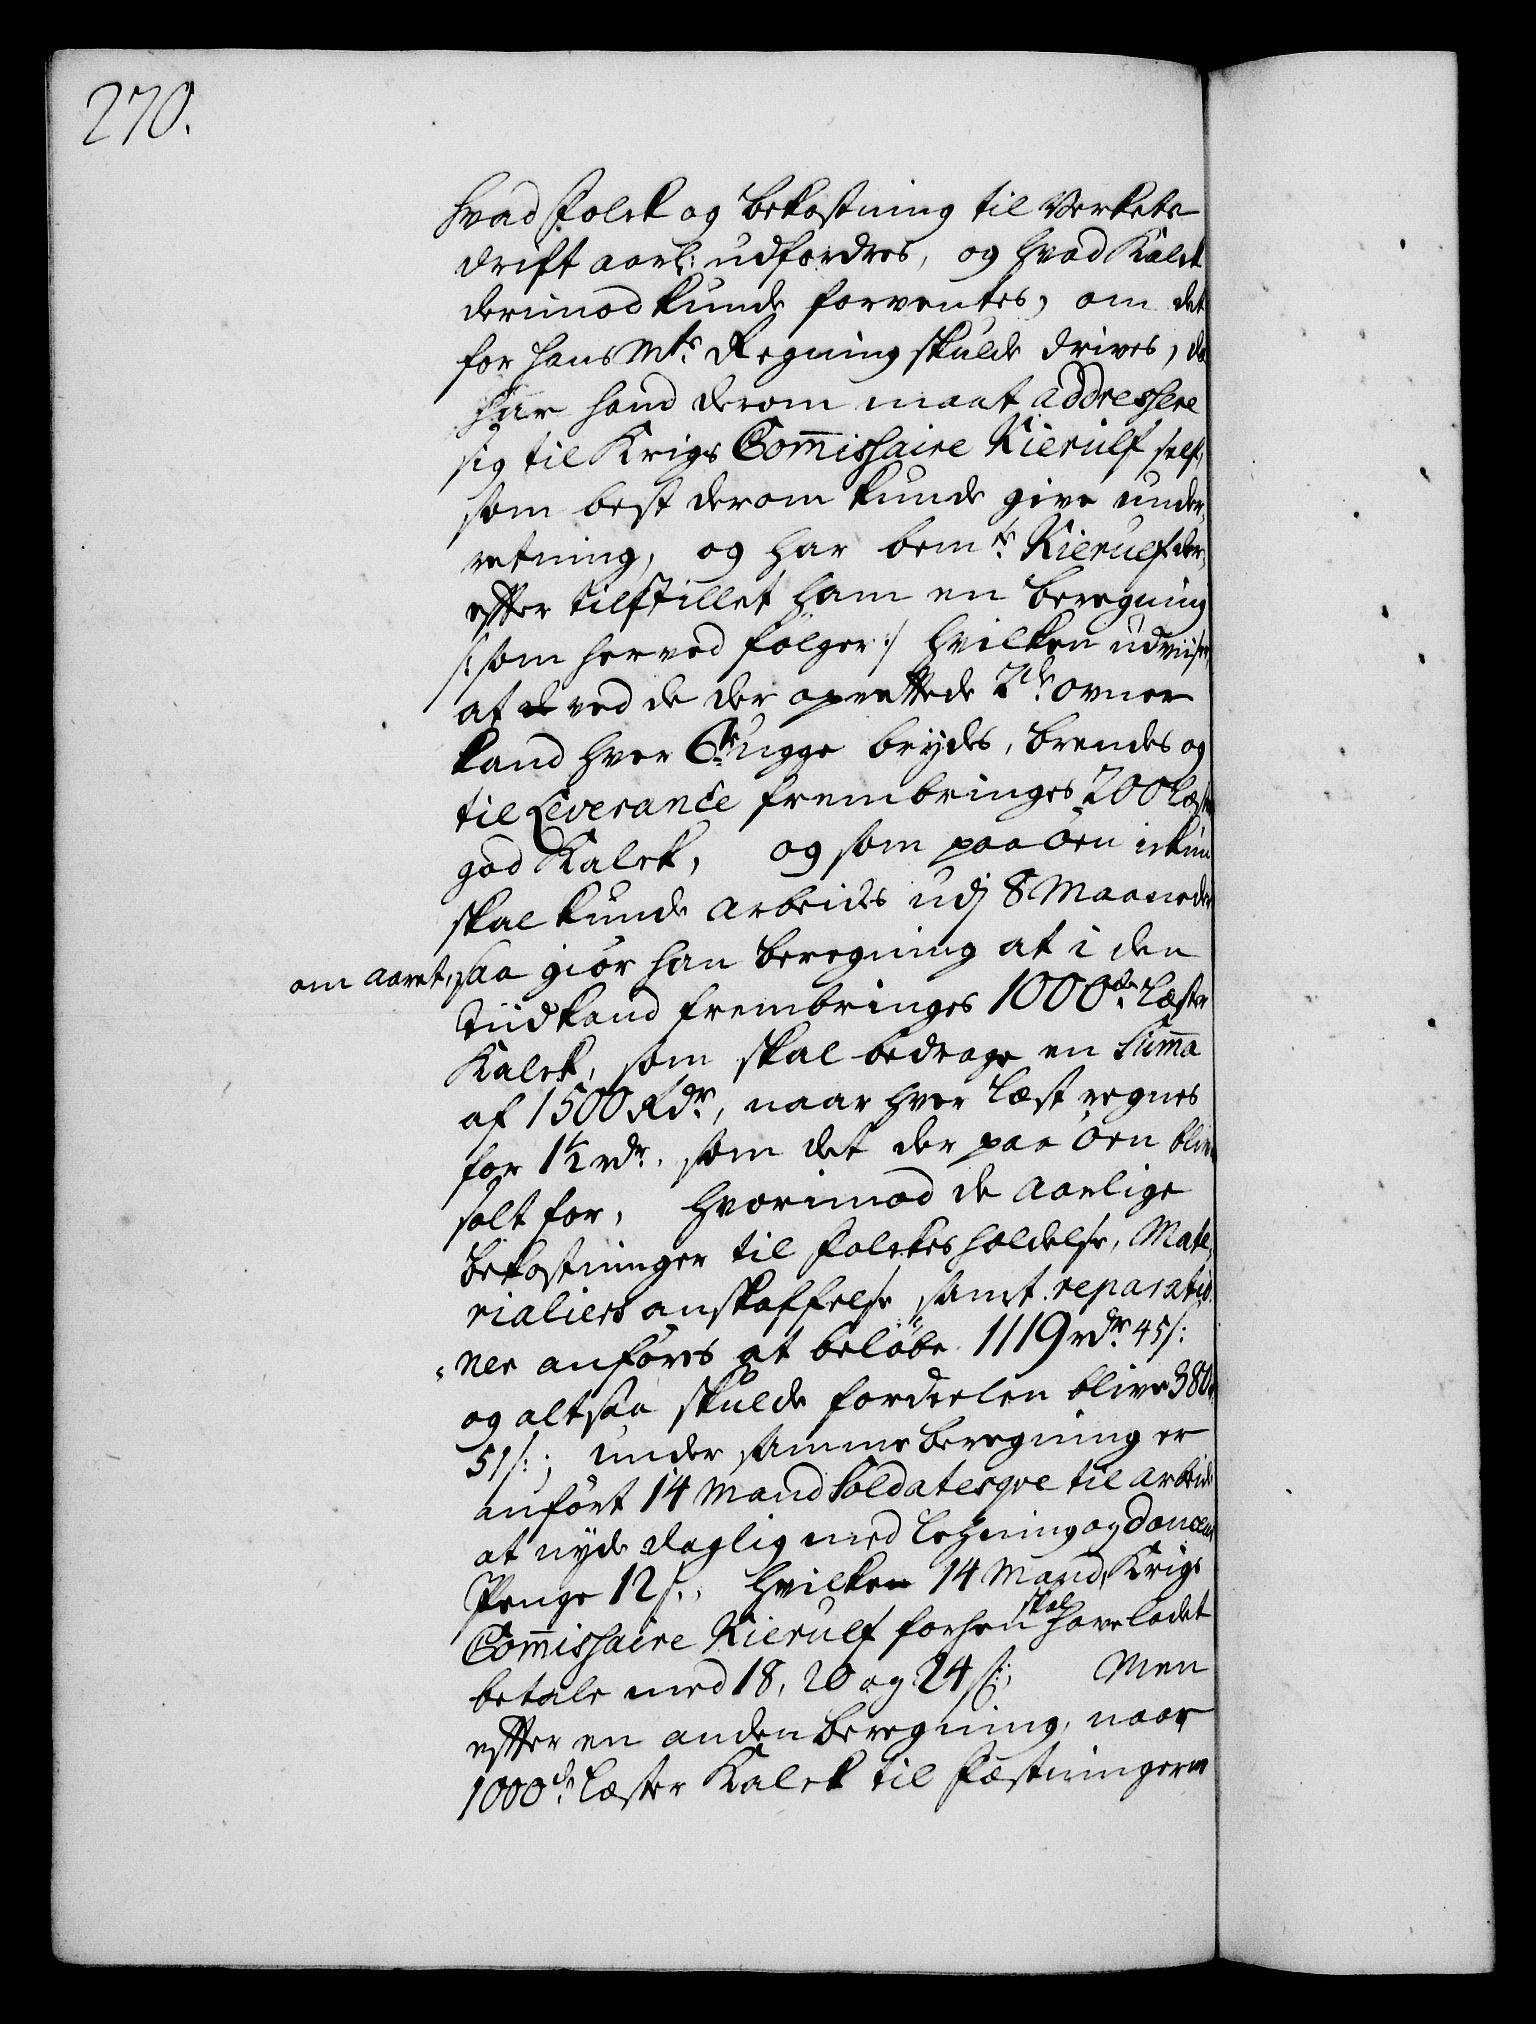 270.
hvad Folck og bekostning til Verkets
drift aarl: udfordres, og hvad Kalck
derimod kunde forventes, om det
for Hans Mts Regning skulde drives, da
har hand derom maat addreshere
sig til Krigs Commishaire Kierulf self,
som best derom kunde give under-
retning, og har bemte Kierulf der-
effter tilstillet ham en beregning
/: som herved følger :/ hvilken udviiser,
at ved de der oprettede 2de ovner
kand hver 6te ugge brydes, brendes og
til Leverance frembringes 200 læster
god Kalck, og som paa øen ickun
skal kunde arbeides udj 8 Maaneder
om aaret, saa giør han beregning at i den
Tiid kand frembringes 1000de læster
Kalck, som skal bedrage en Summa
af 1500 Rdr, naar hver læst regnes
for 1½ rdr. som det der paa øen blive
solt for, hvorimod de aarlige
bekostninger til Folckes holdelse, Mate-
rialiers anskaffelse samt reparatio-
ner anføres at beløbe 1119 rdr 45 s:
og altsaa skulde fordeelen blive 380 r
51 s:; under samme beregning er
anført 14 Mand Soldatesqve til arbeide
at nyde daglig med lehning og Douceur
Penge 12 s:, hvilken 14 Mand, Krigs
Commishaire Kierulf forhen skal have ladet
betale med 18, 20 og 24 s:; Men
effter en anden beregning, naar
1000de læster Kalck til Fæstningerne